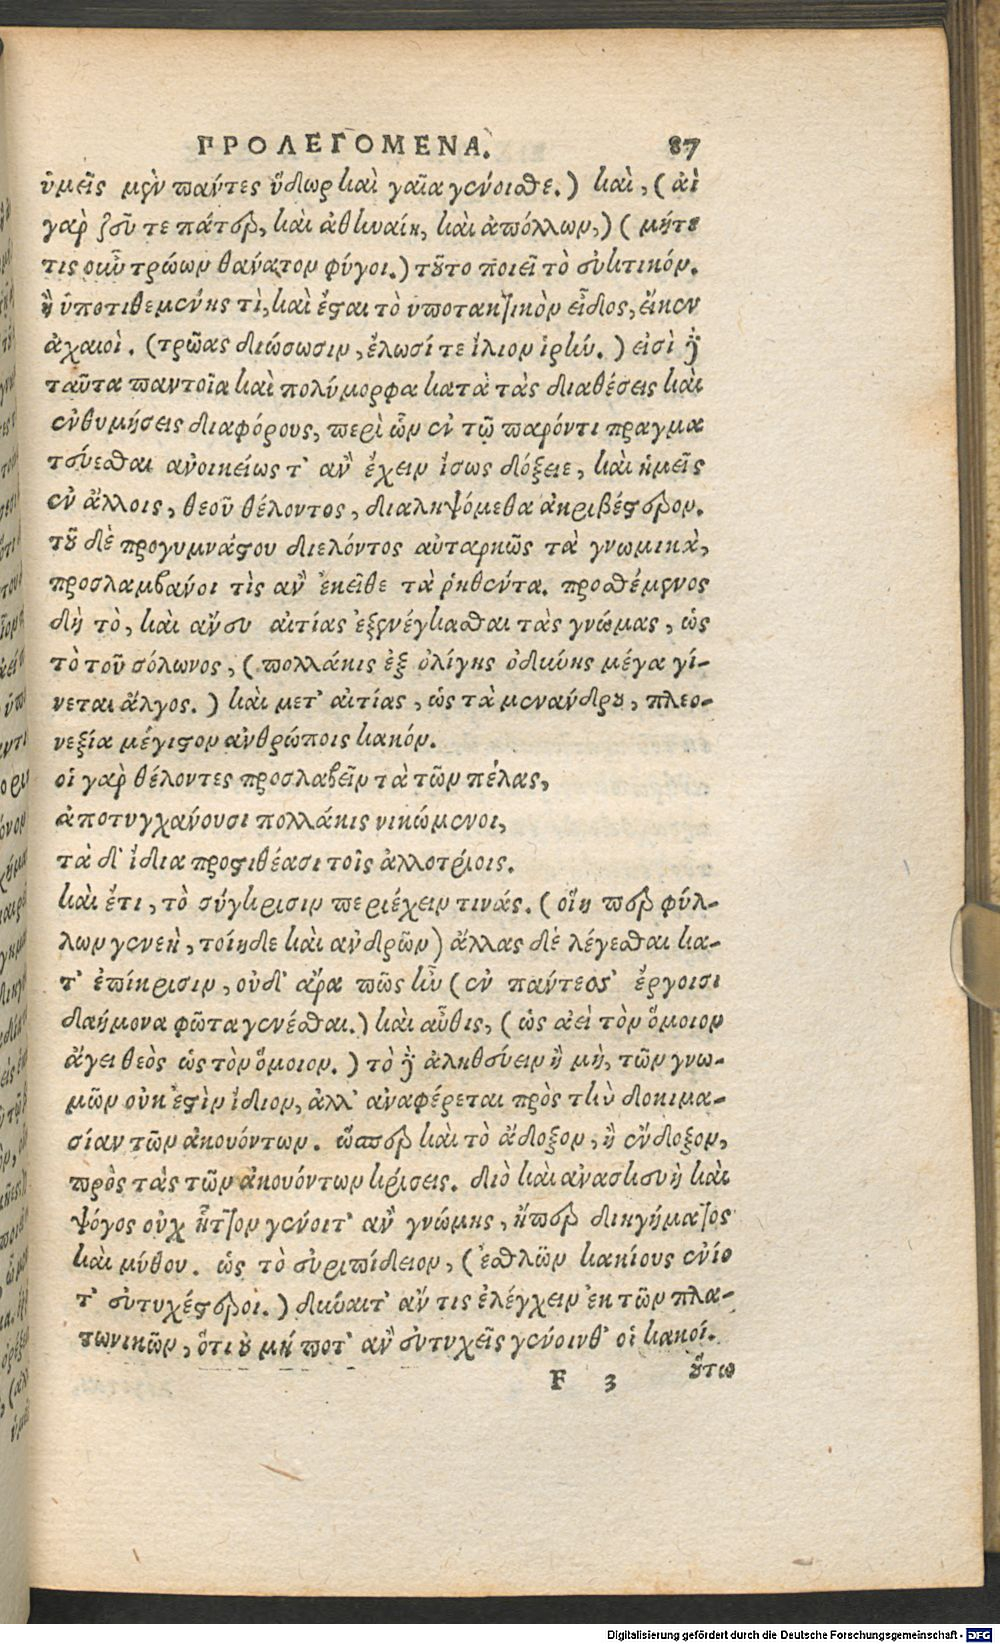 ΠΡΟΛΕΓΟΜΕΝΑ. 87
ὑμεῖς μὲν πάντες ὕδωρ καὶ γαῖα γένοισθε.) καὶ, (αἲ
γὰρ ζεῦ τε πάτερ, καὶ ἀθηναίη, καὶ ἄπολλον,) (μήτε
τις οὖν τρώων θάνατον φύγοι.) τοῦτο ποιεῖ τὸ εὐκτικόν.
ἢ ὑποτιθεμένης τὶ, καὶ ἔσται τὸ ὑποτακτικὸν εἶδος, εἴκεν
ἀχαιοὶ. (τρῶας διώσωσιν, ἕλωσί τε ἴλιον ἱρήν.) εἰσὶ δὲ
ταῦτα παντοῖα καὶ πολύμορφα κατὰ τὰς διαθέσεις καὶ
ἐνθυμήσεις διαφόρους, περὶ ὧν ἐν τῷ παρόντι πραγμα
τεύεσθαι ἀνοικείως τ' ἂν ἔχειν ἴσως δόξειε, καὶ ἡμεῖς
ἐν ἄλλοις, θεοῦ θέλοντος, διαληψόμεθα ἀκριβέστερον.
τοῦ δὲ προγυμνάστου διελόντος αὐταρκῶς τὰ γνωμικὰ,
προσλαμβάνοι τὶς ἂν ἐκεῖθε τὰ ῥηθέντα. προσθέμενος
δὴ τὸ, καὶ ἄνευ αἰτίας ἐξενέγκασθαι τὰς γνώμας, ὡς
τὸ τοῦ σόλωνος, (πολλάκις ἐξ ὀλίγης ὀδύνης μέγα γί-
νεται ἄλγος.) καὶ μετ' αἰτίας, ὡς τὰ μενάνδρου, πλεο-
νεξία μέγιστον ἀνθρώποις κακόν.
οἱ γὰρ θέλοντες προσλαβεῖν τὰ τῶν πέλας,
ἀποτυγχάνουσι πολλάκις νικώμενοι,
τὰ δ' ἴδια προστιθέασι τοῖς ἀλλοτρίοις.
καὶ ἔτι, τὸ σύγκρισιν περιέχειν τινάς. (οἵη περ φύλ-
λων γενεὴ, τοίηδε καὶ ἀνδρῶν) ἄλλας δὲ λέγεσθαι κα-
τ' ἐπίκρισιν, οὐδ' ἄρα πῶς ἦν (ἐν πάντεσ' ἔργοισι
δαήμονα φῶτα γενέσθαι.) καὶ αὖθις, (ὡς ἀεὶ τὸν ὅμοιον
ἄγει θεὸς ὡς τὸν ὅμοιον.) τὸ δὲ ἀληθεύειν ἢ μὴ, τῶν γνω-
μῶν οὐκ ἐστὶν ἴδιον, ἀλλ' ἀναφέρεται πρὸς τὴν δοκιμα-
σίαν τῶν ἀκουόντων. ὥσπερ καὶ τὸ ἄδοξον, ἢ ἔνδοξον,
πρὸς τὰς τῶν ἀκουόντων κρίσεις. διὸ καὶ ἀνασκευὴ καὶ
ψόγος οὐχ ἧττον γένοιτ' ἂν γνώμης, ἤπερ διηγήματος
καὶ μύθου. ὡς τὸ εὐριπίδειον, (ἐσθλῶν κακίους ἐνίο
τ' εὐτυχέστεροι.) δύναιτ' ἄν τις ἐλέγχειν ἐκ τῶν πλα-
τωνικῶν, ὅτι οὐ μή ποτ' ἂν εὐτυχεῖς γένοινθ' οἱ κακοί.
F 3 οὕτω
Digitalisierung gefördert durch die Deutsche Forschungsgemeinschaft - DFG